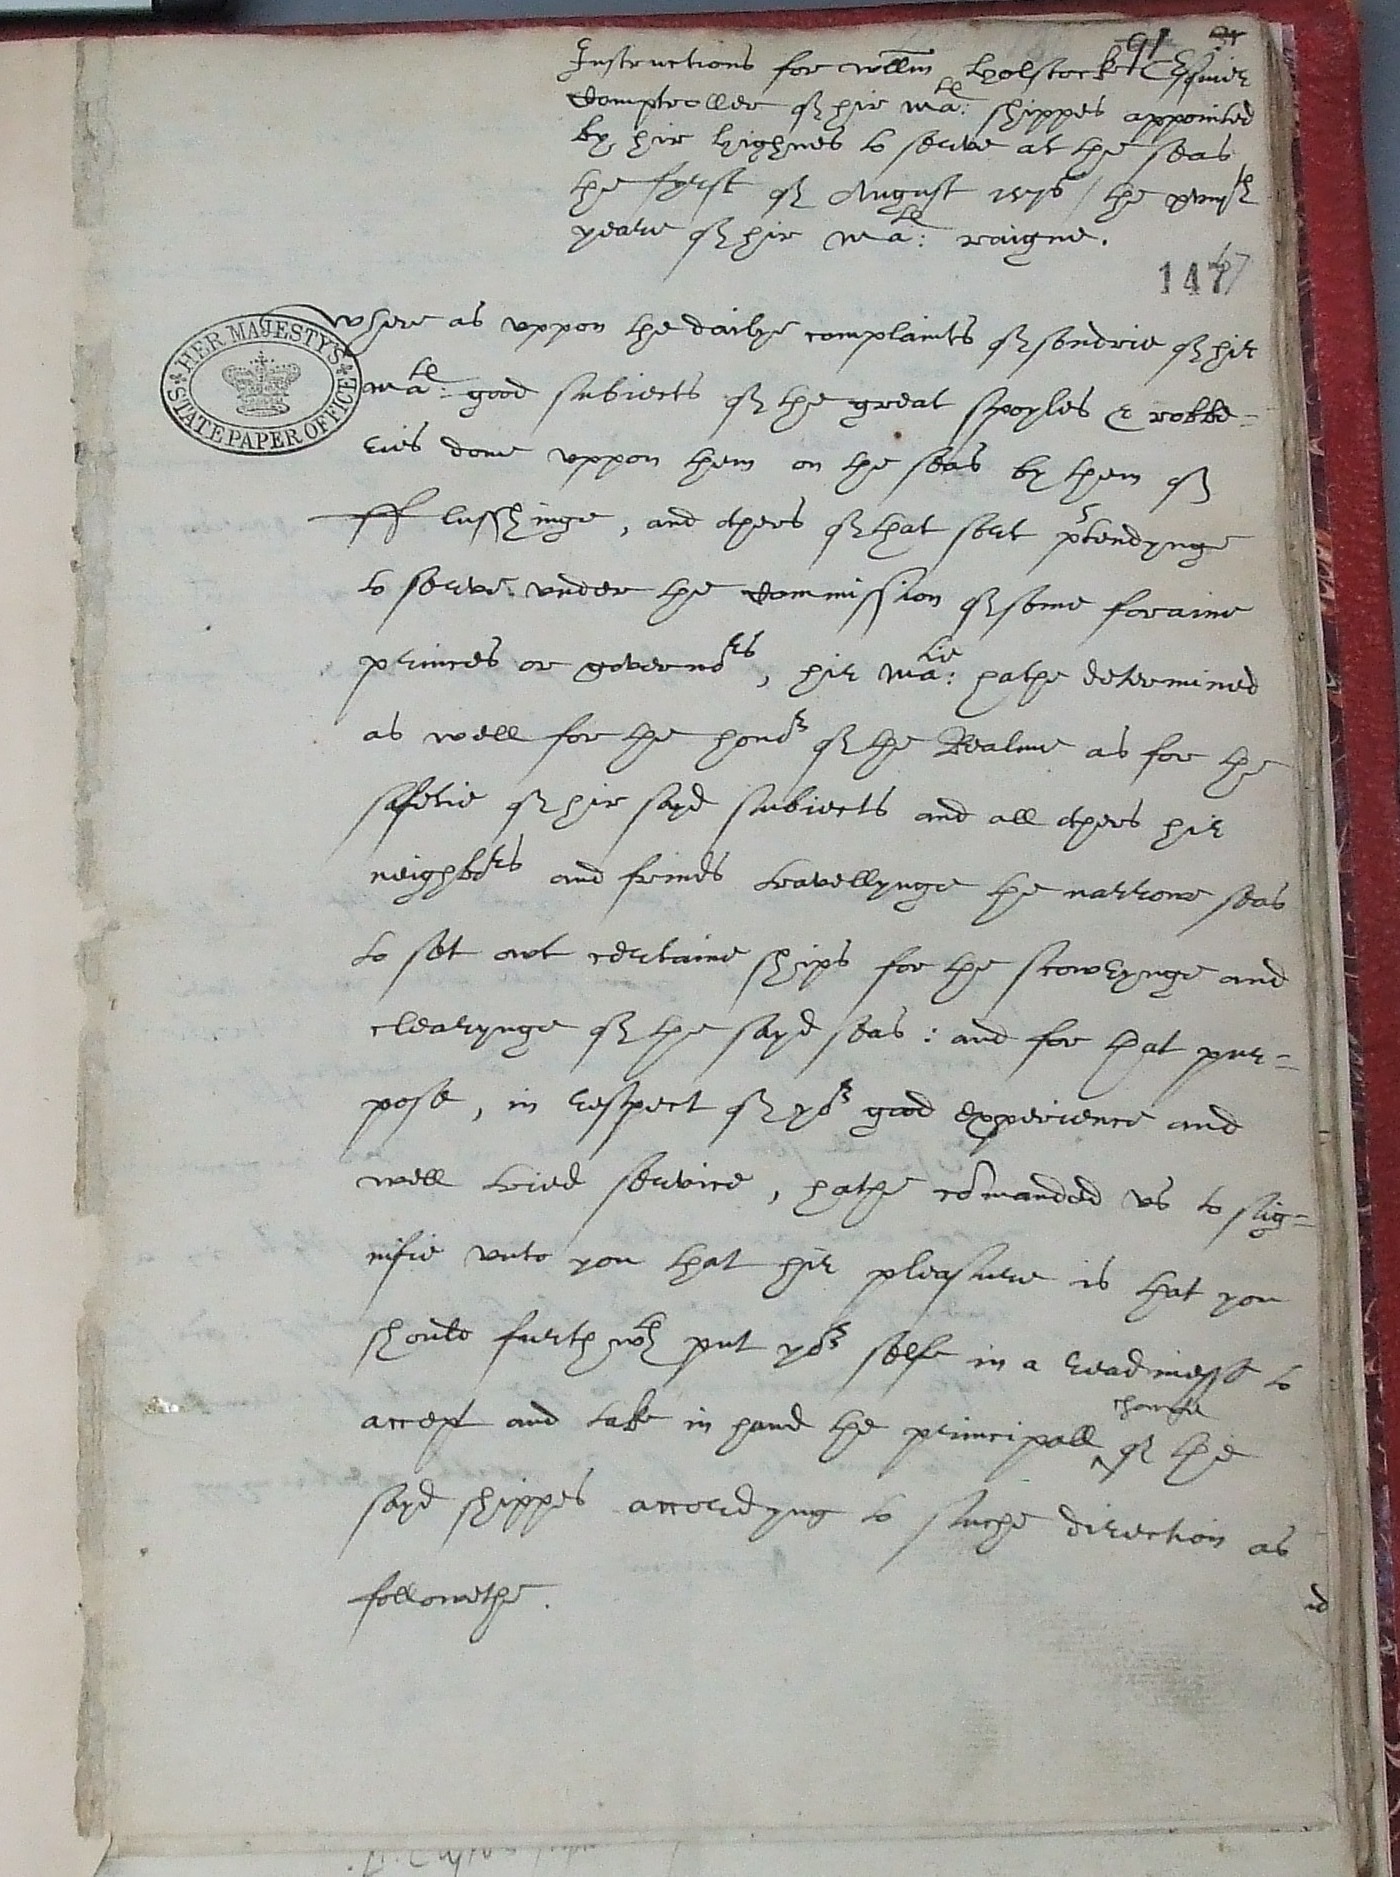 91
Instructions for Willm Holstocke Esquier
Comptroller of hir Ma:tes shippes appointed
by hir highnes to serve at the seas
the fyrst of August 1576 / the xviijth
yeare of hir Ma:tes raigne.
147
HER MAJESTY'S
STATE PAPER OFFICE
Where as uppon the dailye complaints of sondrie of hir
Ma:tes good subiects of the great spoyles & robbe=
ries done uppon them on the seas by them of
fflusshinge, and others of that sort p'tendynge
to serve under the Commission of some foraine
princes or governors, hir Ma:tie hathe determined
as well for the honor of the Realme as for the
safetie of hir sayd subiects and all others hir
neighbors and frinds travellynge the narrowe seas
to set owt certaine ships for the scowrynge and
clearynge of the sayd seas : and for that pur=
pose, in respect of yor good experience and
well tried service, hathe comanded us to sig=
nifie unto you that hir pleasure is that you
should furthwth put yor selfe in a readinesse to
accept and take in hand the principall charge of the
sayd shippes accordyng to suche direction as
followethe.